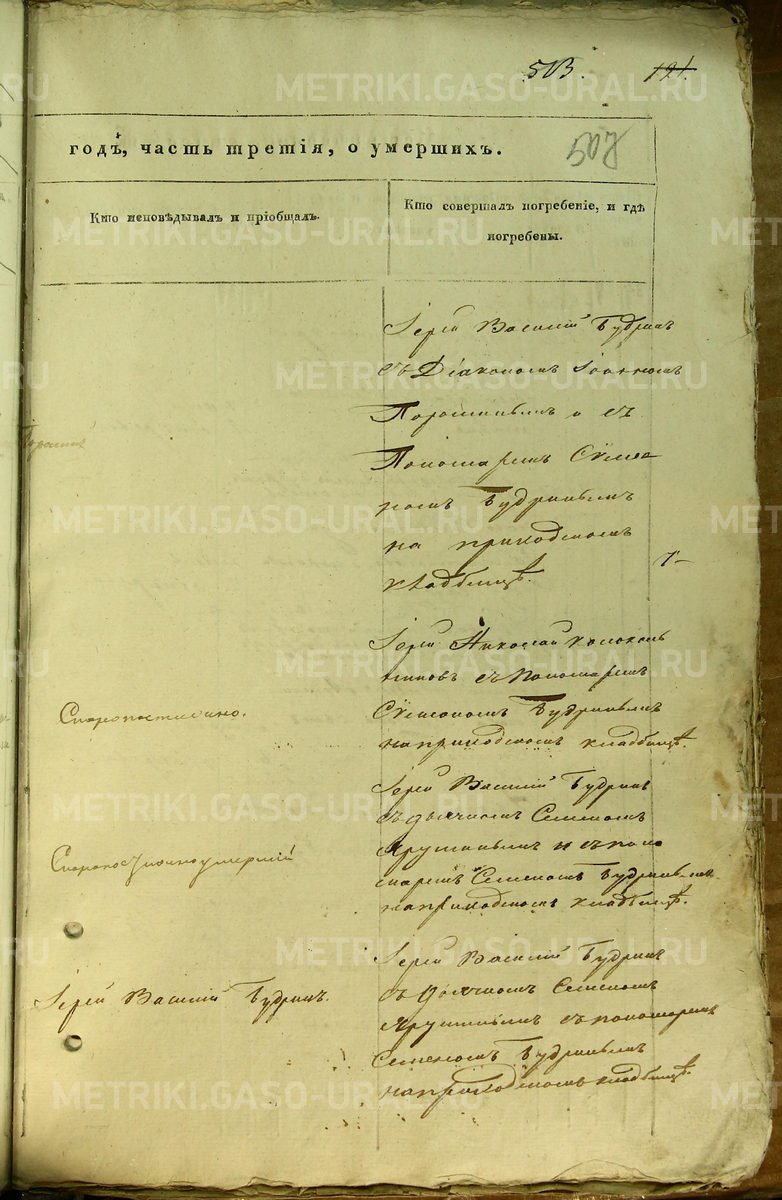 503. 121.
507
годъ, часть третія, о умершихъ.
Кто исповѣдывалъ и пріобщалъ.
Кто совершалъ погребеніе, и гдѣ
погребены.
Іерей Василій Будринъ
съ Діакономъ Іоанномъ
Порошинымъ и съ
Пономаремъ Сѵмео
номъ Будринымъ
на приходскомъ
кладбищѣ.
Іерей Николай Колоколь
никовъ съ Пономаремъ
Скоропостижно.
Сѵмеономъ Будринымъ
на приходскомъ кладбищѣ.
Іерей Василій Будринъ
съ дьячкомъ Семеномъ
Ярушинымъ и съ поно
маремъ Семеномъ Будринымъ
на приходскомъ кладбищѣ.
Іерей Василій Будринъ.
Іерей Василій Будринъ
съ дьячкомъ Семеномъ
Ярушинымъ съ пономаремъ
Семеномъ Будринымъ
на приходскомъ кладбищѣ.
METRIKI.GASO-URAL.RU